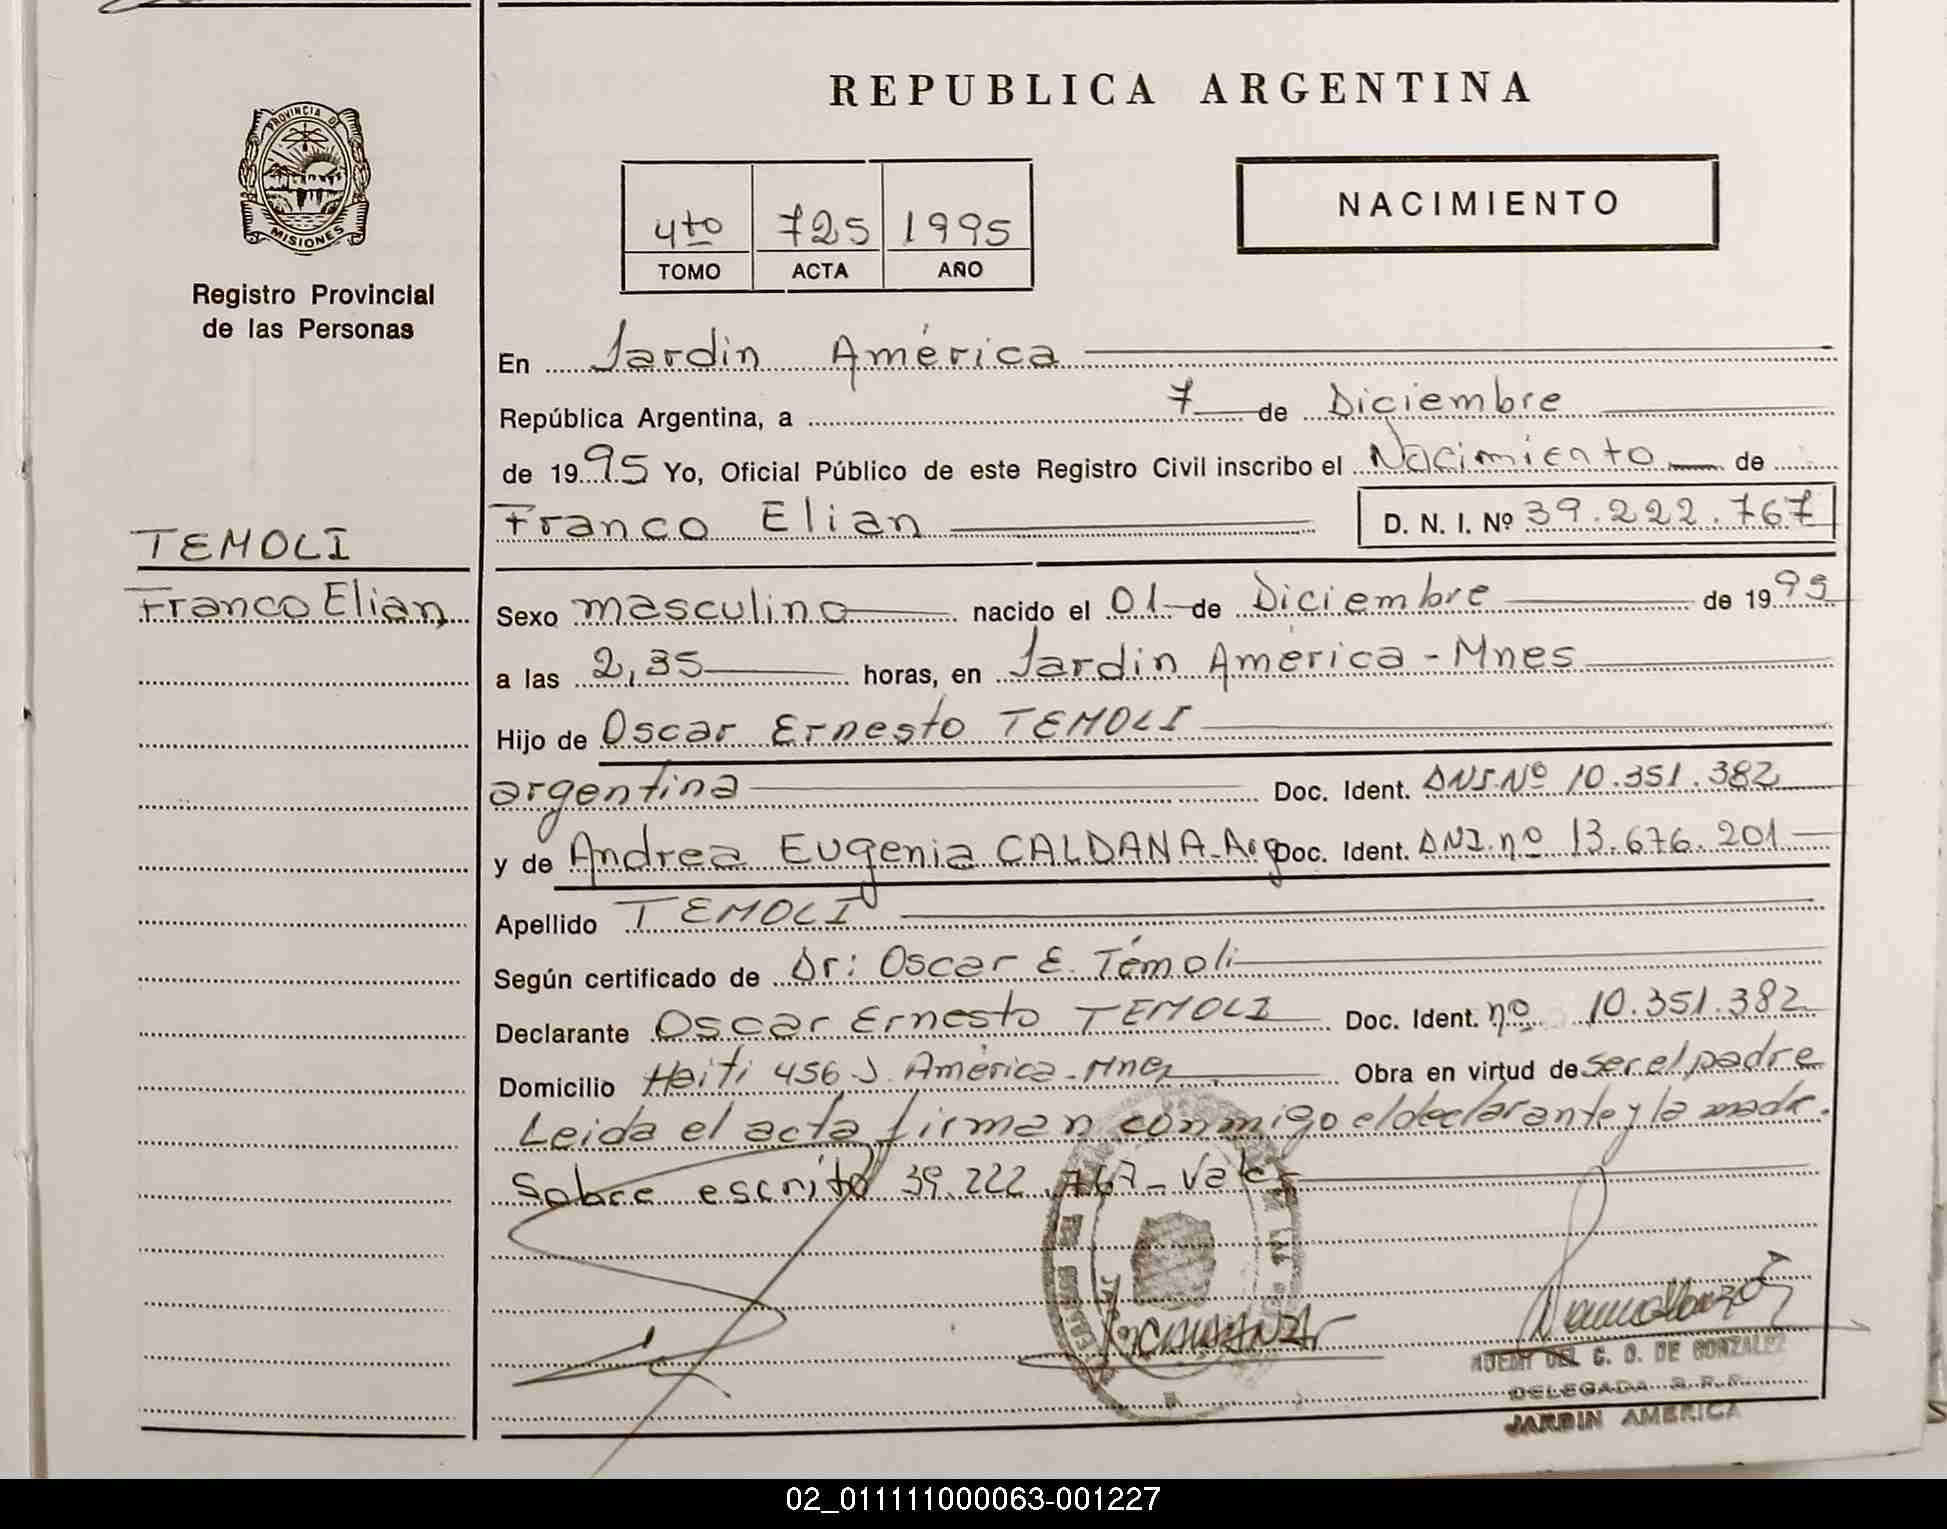 PROVINCIA DE
MISIONES
Registro Provincial
de las Personas
TEMOLI
Franco Elian
REPUBLICA ARGENTINA
4to 725 1995
TOMO ACTA AÑO
NACIMIENTO
En Jardin América
República Argentina, a 7 de Diciembre
de 1995 Yo, Oficial Público de este Registro Civil inscribo el Nacimiento de
Franco Elian D. N. I. Nº 39.222.767
Sexo masculino nacido el 01 de Diciembre de 1995
a las 2,35 horas, en Jardin América - Mnes
Hijo de Oscar Ernesto TEMOLI
argentina Doc. Ident. DNI.Nº 10.351.382
y de Andrea Eugenia CALDANA-Arg Doc. Ident. DNI.nº 13.676.201
Apellido TEMOLI
Según certificado de Dr: Oscar E. Témoli
Declarante Oscar Ernesto TEMOLI Doc. Ident. nº 10.351.382
Domicilio Haiti 456 J. América - Mnes Obra en virtud de ser el padre
Leida el acta firman conmigo el declarante y la madre.
Sobre escrito 39.222.767 - Vale
DEL C. D. DE GONZALEZ
DELEGADA R.P.P.
JARDIN AMERICA
02_011111000063-001227